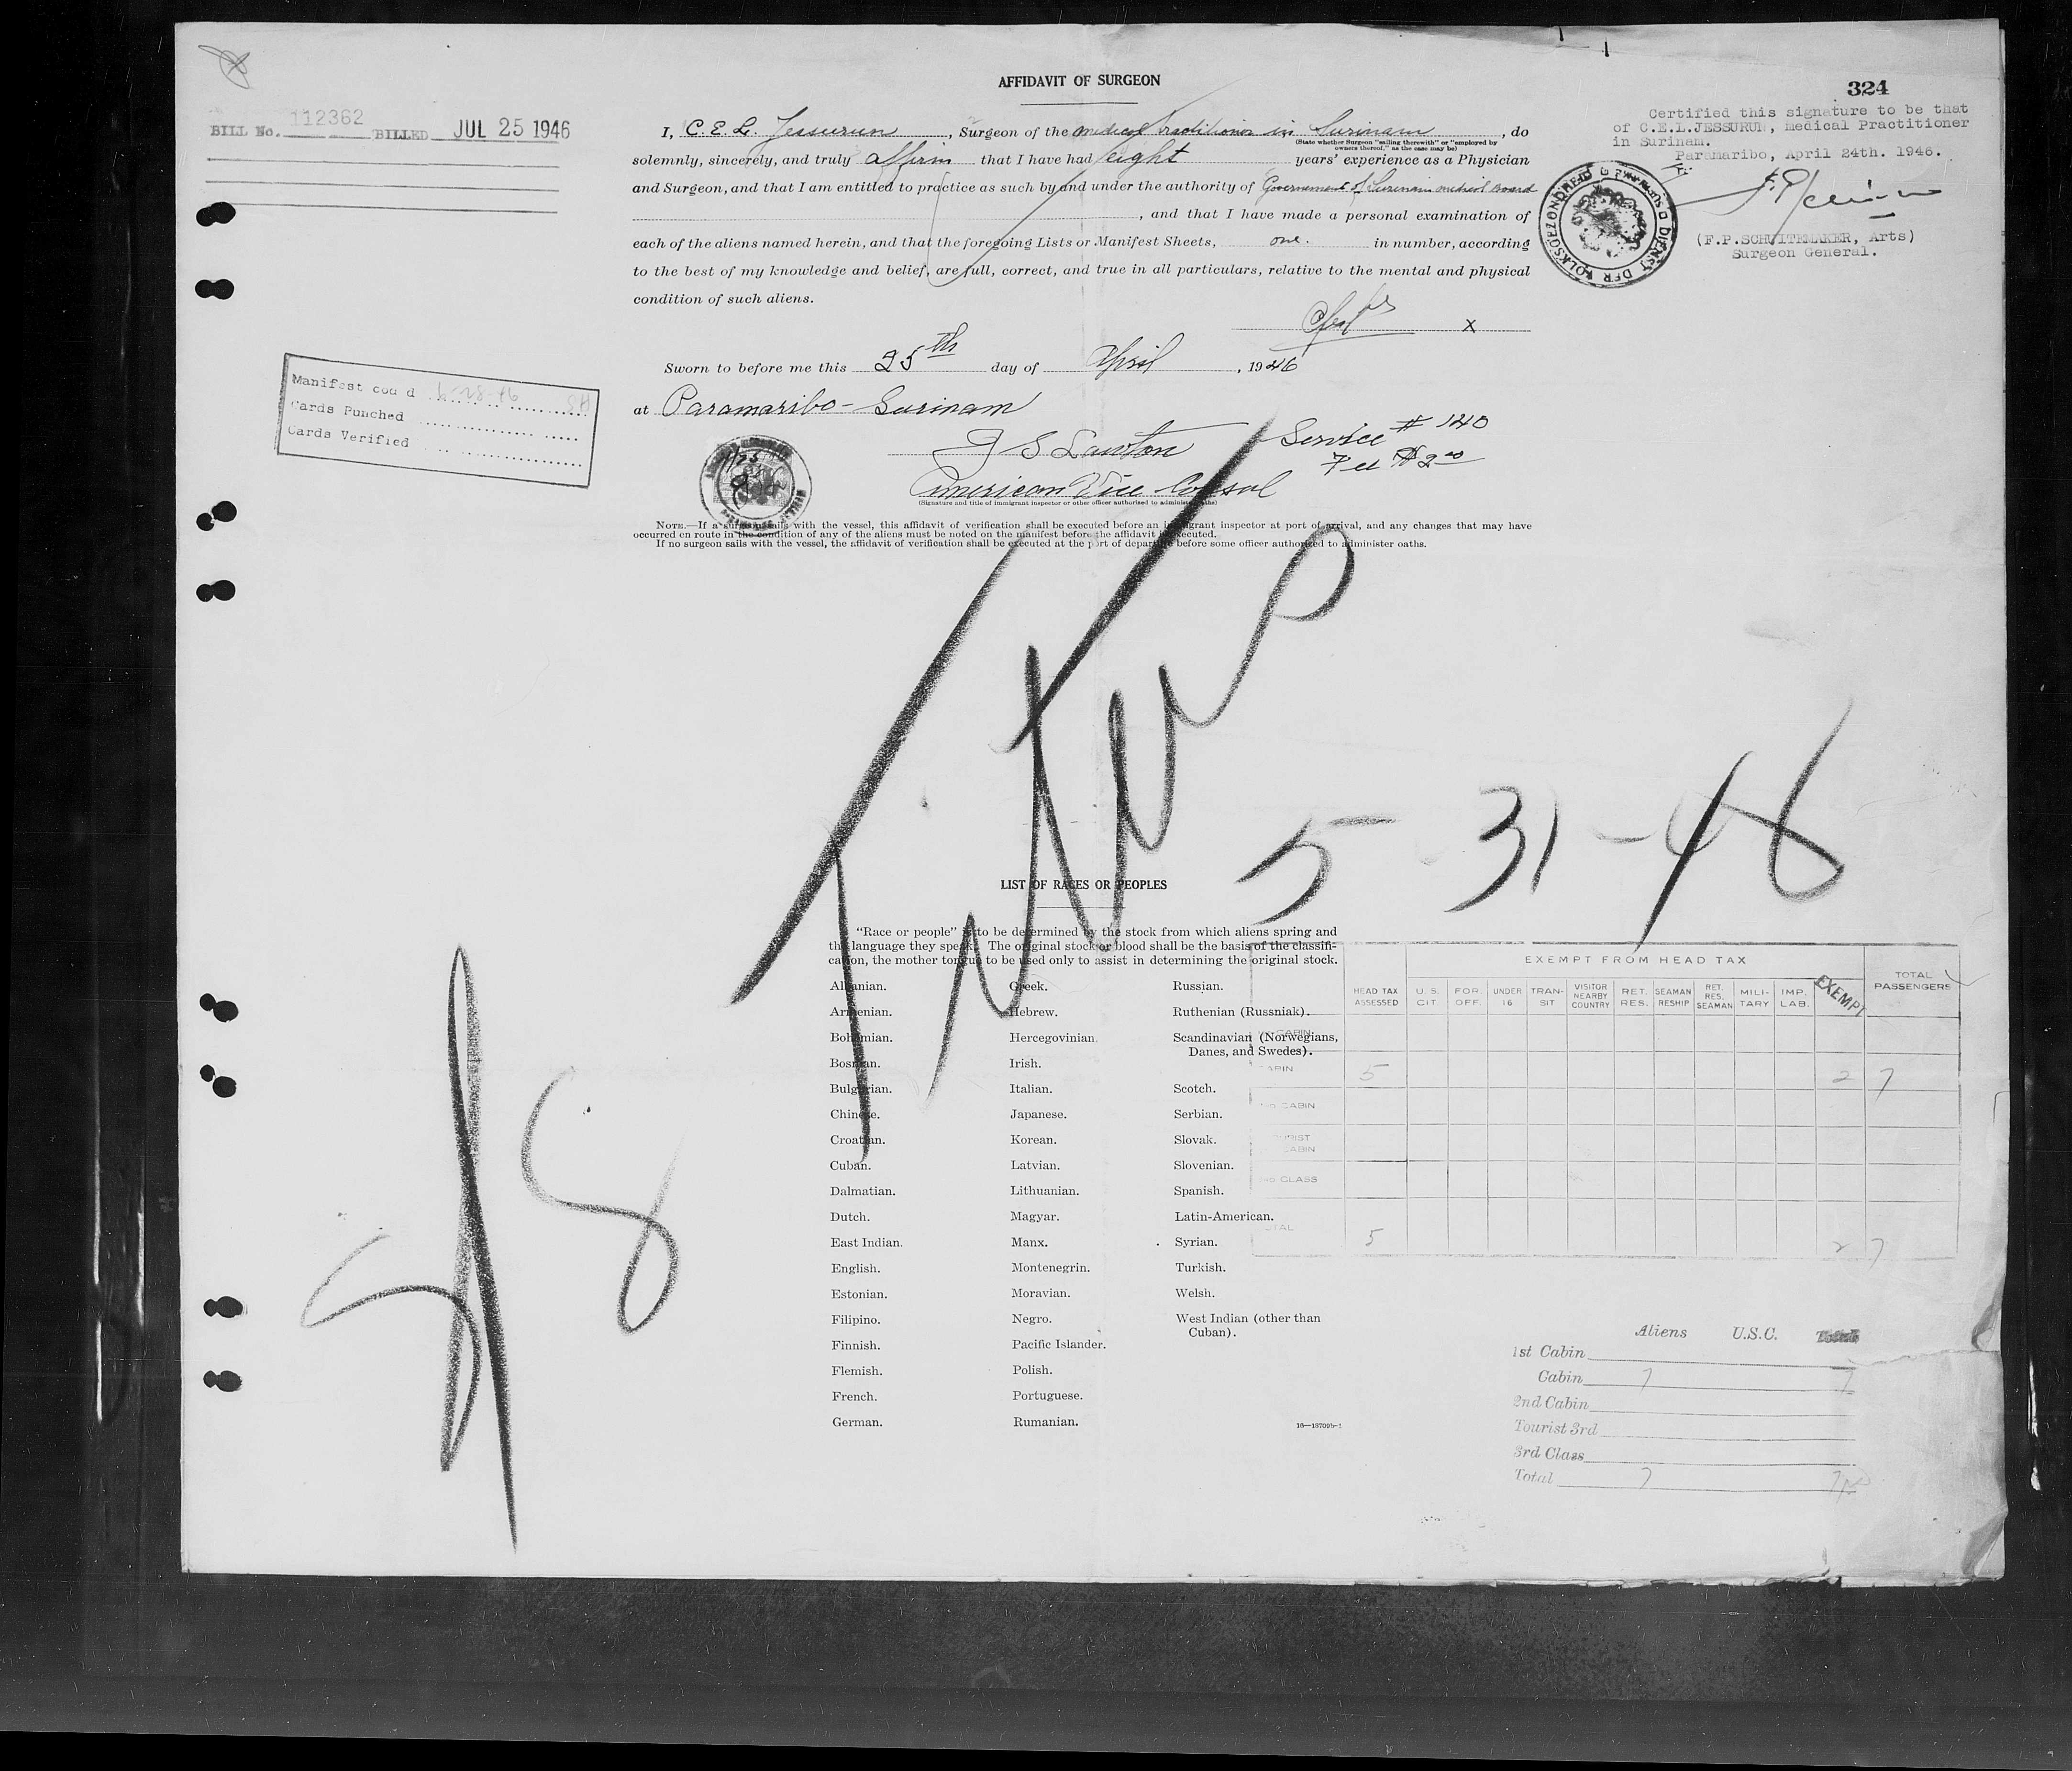 AFFIDAVIT OF SURGEON
324
BILL No. 112362 BILLED JUL 25 1946
I, C. E. L. Jessurun, Surgeon of the medical Practitioner in Surinam, do
(State whether Surgeon "sailing therewith" or "employed by
owners thereof," as the case may be)
solemnly, sincerely, and truly affirm that I have had eight years' experience as a Physician
and Surgeon, and that I am entitled to practice as such by and under the authority of Government of Surinam medical Board
, and that I have made a personal examination of
each of the aliens named herein, and that the foregoing Lists or Manifest Sheets, one. in number, according
to the best of my knowledge and belief, are full, correct, and true in all particulars, relative to the mental and physical
condition of such aliens.
x
Certified this signature to be that
of C.E.L.JESSURUN, medical Practitioner
in Surinam.
Paramaribo, April 24th. 1946.
(F.P.SCHUITEMAKER, Arts)
Surgeon General.
DIENST DER VOLKSGEZONDHEID
Sworn before me this 25th day of April, 1946
at Paramaribo - Surinam
J S Lawton
American Vice Consul
(Signature and title of immigrant inspector or other officer authorized to administer oaths)
Service # 140
Fee $2.00
Manifest cou d 6-28-46 SH
Cards Punched
Cards Verified
NOTE.—If a surgeon sails with the vessel, this affidavit of verification shall be executed before an immigrant inspector at port of arrival, and any changes that may have
occurred en route in the condition of any of the aliens must be noted on the manifest before the affidavit is executed.
If no surgeon sails with the vessel, the affidavit of verification shall be executed at the port of departure before some officer authorized to administer oaths.
Titus
5-31-46
S/S
LIST OF RACES OR PEOPLES
"Race or people" is to be determined by the stock from which aliens spring and
the language they speak. The original stock or blood shall be the basis of the classifi-
cation, the mother tongue to be used only to assist in determining the original stock.
Albanian.
Armenian.
Bohemian.
Bosnian.
Bulgarian.
Chinese.
Croatian.
Cuban.
Dalmatian.
Dutch.
East Indian.
English.
Estonian.
Filipino.
Finnish.
Flemish.
French.
German.
Greek.
Hebrew.
Hercegovinian.
Irish.
Italian.
Japanese.
Korean.
Latvian.
Lithuanian.
Magyar.
Manx.
Montenegrin.
Moravian.
Negro.
Pacific Islander.
Polish.
Portuguese.
Rumanian.
Russian.
Ruthenian (Russniak).
Scandinavian (Norwegians,
Danes, and Swedes).
Scotch.
Serbian.
Slovak.
Slovenian.
Spanish.
Latin-American.
Syrian.
Turkish.
Welsh.
West Indian (other than
Cuban).
16—18709b-1
EXEMPT FROM HEAD TAX
HEAD TAX ASSESSED U.S. CIT. FOR. OFF. UNDER 16 TRAN-SIT VISITOR NEARBY COUNTRY RET. RES. SEAMAN RESHIP RET. RES. SEAMAN MILI-TARY IMP. LAB. EXEMPT TOTAL PASSENGERS
CABIN
CABIN 5 2 7
2ND CABIN
TOURIST CABIN
3RD CLASS
TOTAL 5 2 7
Aliens U.S.C. Total
1st Cabin
Cabin 7 7
2nd Cabin
Tourist 3rd
3rd Class
Total 7 7